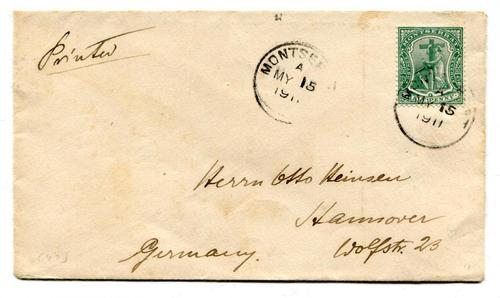 Printed
MONTSERRAT
HALFPENNY
MONTSE
A
MY 15
1911
MY 15
1911
Herrn Otto Heinsen
Hannover
Germany. Wolfstr. 23